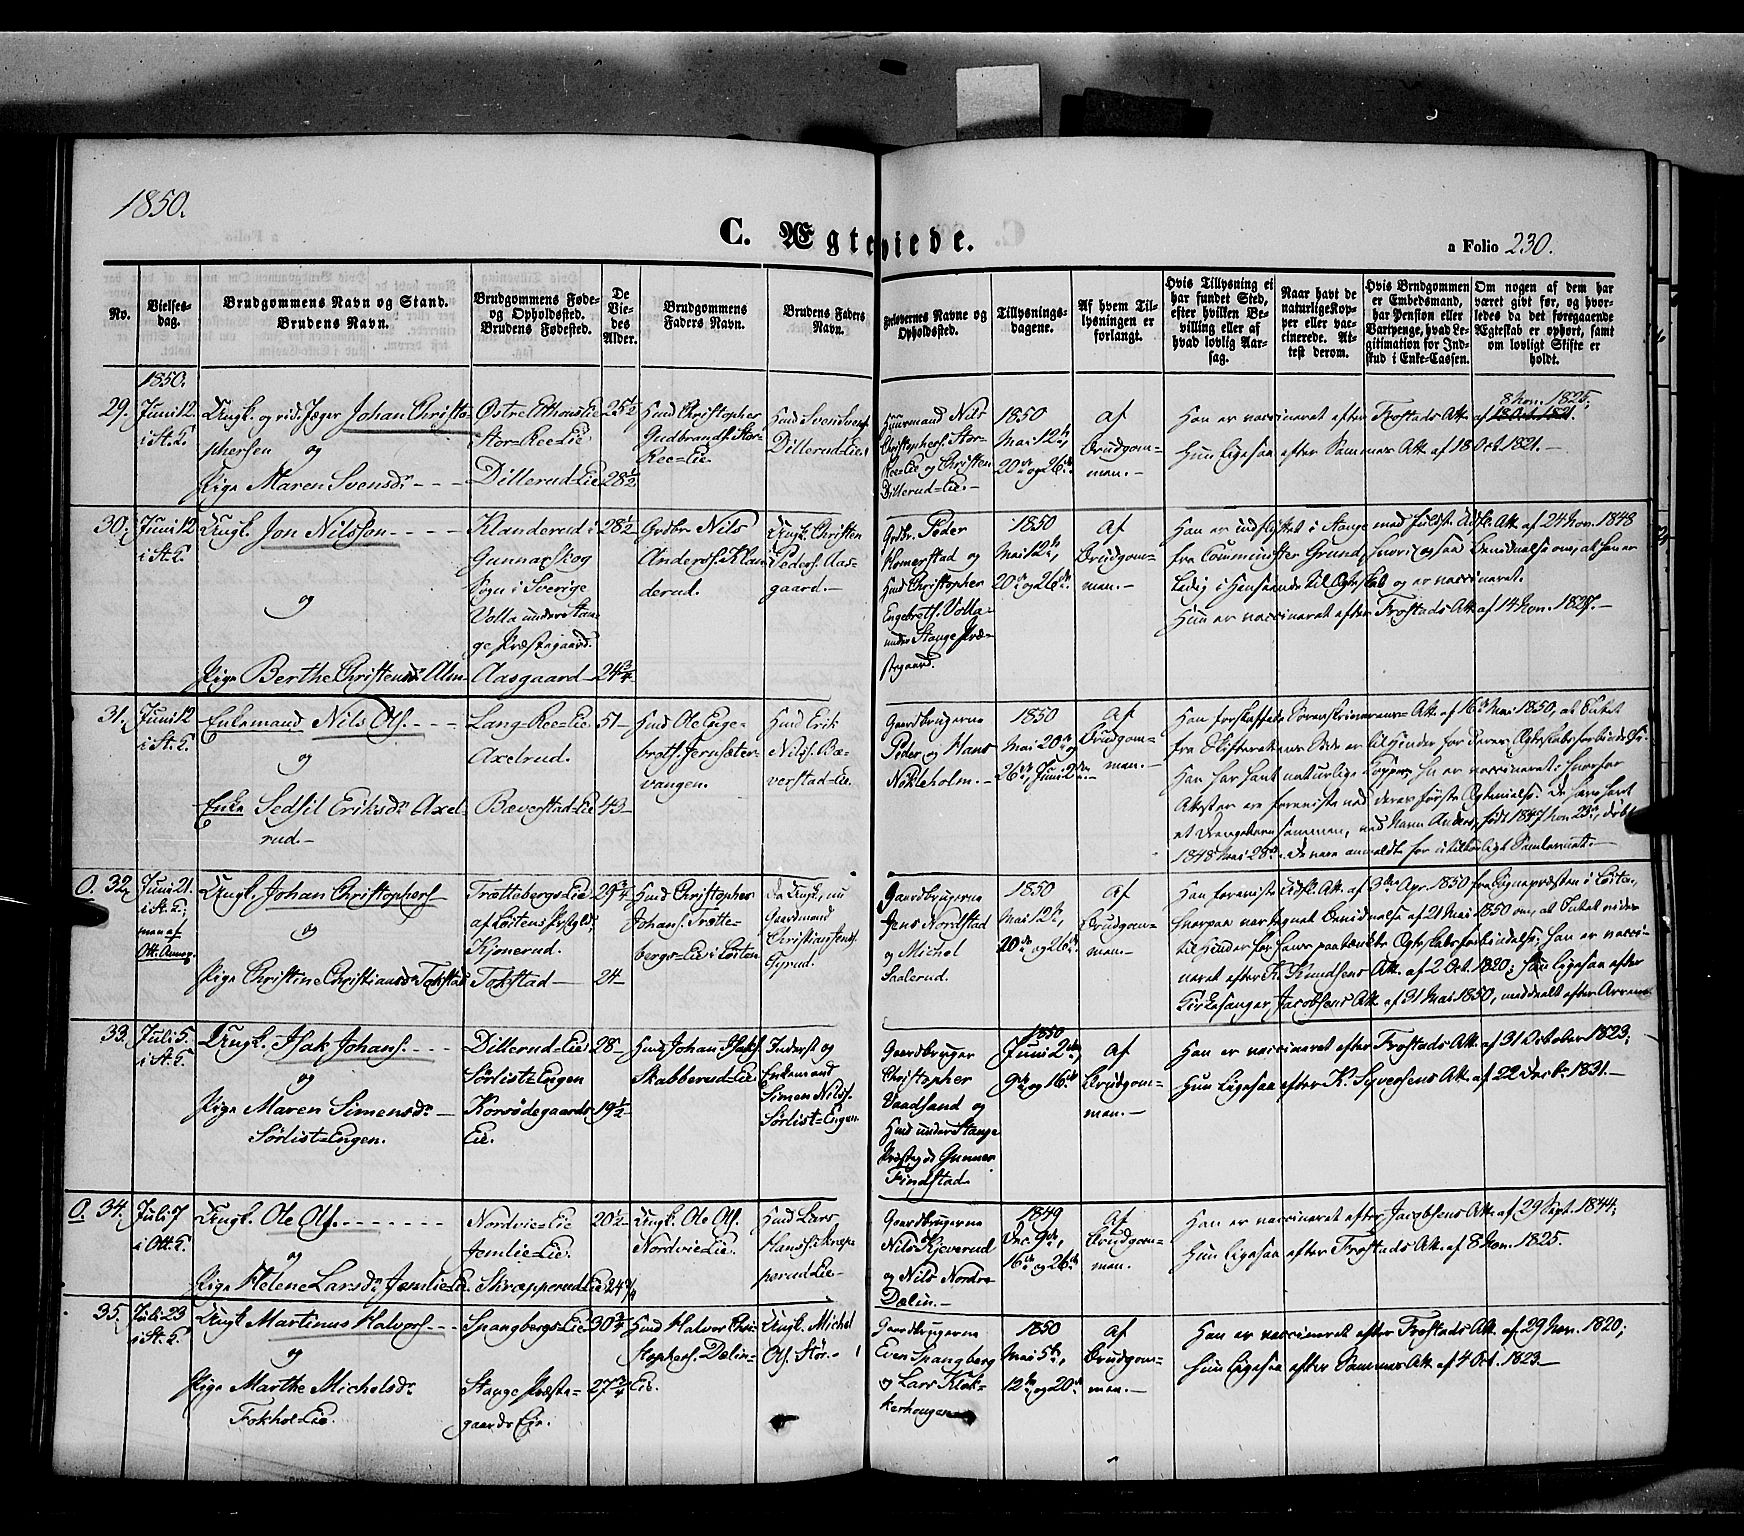 1850.
C. Ægteviede.
a Folio 230.
No.
Vielses-
dag.
Brudgommens Navn og Stand.
Brudens Navn.
Brudgommens Føde-
og Opholdssted.
Brudens Fødested.
De
Vie-
des
Alder.
Brudgommens
Faders Navn.
Brudens Faders
Navn.
Forlovernes Navne og
Opholdssted.
Tillysnings-
dagene.
Af hvem Til-
lysningen er
forlangt.
Hvis Tillysning ei
har fundet Sted,
efter hvilken Be-
villing eller af
hvad lovlig Aar-
sag.
Naar havt de
naturlige Kop-
per eller vac-
cinerede. At-
test derom.
Hvis Brudgommen
er Embedsmand,
har Pension eller
Vartpenge, hvad Le-
gitimation for Ind-
skud i Enke-Cassen.
Om nogen af dem har
været givt før, og hvor-
ledes da det foregaaende
Ægteskab er ophørt, samt
om lovligt Skifte er
holdt.
1850.
29. Juni 12.
i St. K.
Ungk. og rid. Jæger Johan Christo-
phersen og
Pige Maren Svensdr
Østre Etthous Eie
Stor-Ree-Eie
Dillerud-Eie
25½
28½
Huusmd Christopher
Gudbrands. Stor-
Ree-Eie.
Dillerud-Eie
Huusmand Nils
Christophers. Stor-
Ree-Eie og Christen
Dillerud-Eie.
1850
Mai 12te,
20de og 26de
af
Brudgom-
men.
8 Nov. 1825;
Han er vaccineret efter Frostads Att. af 18 Oct. 1821.
Hun ligesaa efter Sommers Att. af 18 Oct. 1821.
30. Juni 12
i St. K.
Ungk. Jon Nilsson
og
Pige Berthe Christensdr Alm-
Klanderud i
Gunnarskog
Sogn i Sverige
Volla under Stan-
ge Præstegaard.
Aasgaard
28½
24¾
Gdbr. Nils
Anders. Klan-
derud.
Ungk. Christen
Peders. Aas-
gaard.
Gdbr. Peder
Homerstad og
Hmd Christopher
Engebrets. Volla
under Stange Præ-
stegaard.
1850
Mai 12te,
20de og 26de
af
Brudgom-
men.
Han er indflyttet i Stange med fuldst. Udfl. Att. af 24 Nov. 1848
fra Comminister Grund, hvori ogsaa Bevidnelse om, at han er
ledig i Henseende til Ægteskab og er vaccineret.
Hun er vaccineret efter Frostads Att. af 14 Nov. 1827.
31. Juni 12
i St. K.
Enkemand Nils Ols.
og
Enke Sedsil Eriksdr Axel-
rud.
Lang-Ree-Eie
Axelrud.
Bæverstad-Eie
51
43
Hmd Ole Enge-
brets. Jernsæter-
vangen.
Hmd Erik
Nils. Bæ-
verstad-Eie.
Gaardbrugerne
Peder og Hans
Nøkleholm.
1850
Mai 20de og
26de, Juni 2den
af
Brudgom-
men.
Han forskaffede Sorenskriverens Att. af 16de Mai 1850, at Intet
fra Skifterettens Side er til Hinder for deres Ægteskabsforbindelse.
Han har havt naturlige Kopper, hun er vaccineret; hvorfor
Attester er foreviste ved deres første Ægtevielse. De have havt
et Drengebarn sammen, ved Navn Anders, født 1847 Nov. 23de, døbt
1848 Mai 28de. De vare anmeldte for utilbørligt Samlevnet.
O. 32. Juni 21.
i St. K.;
men af
Ott. Annex.
Ungk. Johan Christophers.
og
Pige Christine Christiansdr Tokstad
Trættebergs-Eie
af Løitens Præstgjeld,
Kjonerud.
Tokstad
29¾
24
Hmd Christopher
Johans. Trætte-
bergs-Eie i Løiten
Da Ungk., nu
Gaardmand
Christian Jens.
Gyrud.
Gaardbrugerne
Jens Nordstad
og Michel
Saalerud.
1850
Mai 12te,
20de og 26de
af
Brudgom-
men.
Han foreviste Udfl. Att. af 3die Apr. 1850 fra Sognepræsten i Løiten,
hvorpaa var tegnet Bevidnelse af 21 Mai 1850 om, at Intet vides
til Hinder for hans paatænkte Ægteskabsforbindelse; han er vacci-
neret efter K. Knudsens Att. af 2 Oct. 1820; hun ligesaa efter
Kirkesanger Jacobsens Att. af 31 Mai 1850, meddeelt efter
33. Juli 5.
i St. K.
Ungk. Isak Johans.
og
Pige Maren Simensdr
Sørlist-Engen.
Dillerud-Eie
Sørlist-Engen
Korsødegaards-
Eie.
28
19½
Hmd Johan Isaks.
Skabberud-Eie
Inderst og
Enkemand
Simen Nils.
Sørlist-Engen.
Gaardbruger
Christopher
Vaadsand og
Hmd under Stange
Præstegd Gunner
Findstad.
1850
Juni 2den,
9de og 16de
af
Brudgom-
men.
Han er vaccineret efter Frostads Att. af 31 October 1823;
Hun ligesaa efter K. Syversens Att. af 22 Decb. 1831.
O. 34. Juli 7
i Ott. K.
Ungk. Ole Ols.
og
Pige Helene Larsdr Jemlie-Eie
Nordvie-Eie
Jemlie-Eie.
Skrepperud-Eie
20½
24¾
Ungk. Ole Ols.
Nordvie-Eie.
Hmd Lars
Hans. Skrep-
perud-Eie
Gaardbrugerne
Nils Kjeverud
og Nils Nordre
Dælin.
1849
Dec. 9de,
16de og 26de
af
Brudgom-
men.
Han er vaccineret efter Jacobsens Att. af 29 Sept. 1844;
Hun ligesaa efter Frostads Att. af 8 Nov. 1825.
35. Juli 23
i St. K.
Ungk. Martinus Halvors.
og
Pige Marthe Michelsdr
Fokhol-Eie.
Spangbergs-Eie
Stange Præste-
gaards Eie.
30¾
27¾
Hmd Halvor Chri-
stophers. Dælin-
Eie.
Ungk. Michel
Ols. Stør.
Gaardbrugerne
Even Spangberg
og Lars Klok-
kerhaugen
1850
Mai 5te,
12te og 20de
af
Brudgom-
men.
Han er vaccineret efter Frostads Att. af 29 Nov. 1820;
Hun ligesaa efter Sommers Att. af 4 Oct. 1823.